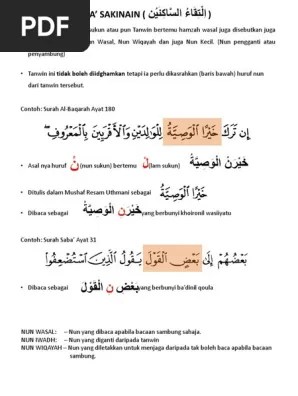 PDF
A' SAKINAIN ( الْتِقَاءُ السَّاكِنَيْنِ )
sukun atau pun Tanwin bertemu hamzah wasal juga disebutkan juga
Wasal, Nun Wiqayah dan juga Nun Kecil. (Nun pengganti atau
penyambung)
• Tanwin ini tidak boleh diidghamkan tetapi ia perlu dikasrahkan (baris bawah) huruf nun
dari tanwin tersebut.
Contoh: Surah Al-Baqarah Ayat 180
إِن تَرَكَ خَيْرًا ٱلْوَصِيَّةُ لِلْوَٰلِدَيْنِ وَٱلْأَقْرَبِينَ بِٱلْمَعْرُوفِ
• Asal nya huruf نْ (nun sukun) bertemu لْ (lam sukun) خَيْرَنْ الْوَصِيَّةُ
• Ditulis dalam Mushaf Resam Uthmani sebagai خَيْرًا ٱلْوَصِيَّةُ
• Dibaca sebagai خَيْرَنِ الْوَصِيَّةُ yang berbunyi khoironil wasiiyatu
Contoh: Surah Saba' Ayat 31
بَعْضُهُمْ إِلَىٰ بَعْضٍ ٱلْقَوْلَ يَقُولُ ٱلَّذِينَ ٱسْتُضْعِفُوا۟
• Dibaca sebagai بَعْضِنِ الْقَوْلَ yang berbunyi ba'dinil qoula
NUN WASAL: – Nun yang dibaca apabila bacaan sambung sahaja.
NUN IWADH: – Nun yang diganti daripada tanwin
NUN WIQAYAH – Nun yang diletakkan untuk menjaga daripada tak boleh baca apabila bacaan
sambung.